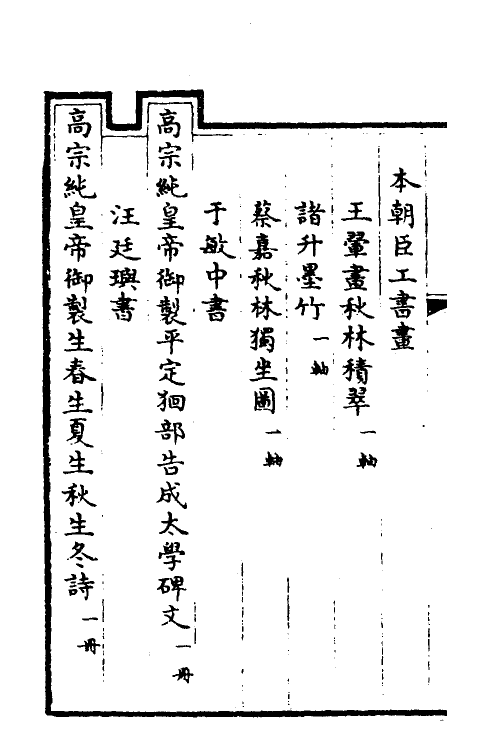 本朝臣工書畫
王翬畫秋林積翠一軸
諸升墨竹一軸
蔡嘉秋林獨坐圖一軸
于敏中書
高宗純皇帝御製平定狪部告成太學碑文一冊
汪廷璵書
高宗純皇帝御製生春生夏生秋生冬詩一冊